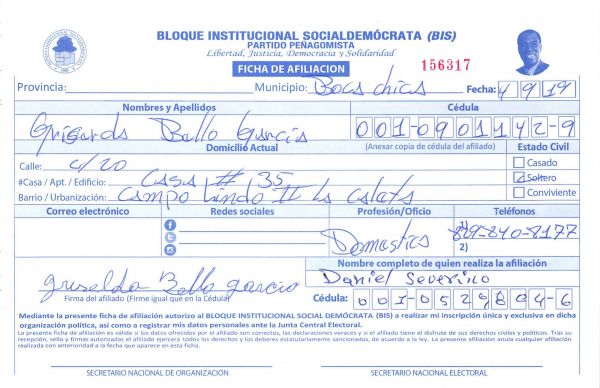 BLOQUE INSTITUCIONAL SOCIALDEMÓCRATA (BIS)
PARTIDO PEÑAGOMISTA
Libertad, Justicia, Democracia y Solidaridad
FICHA DE AFILIACION
156317
Provincia:
Municipio: Boca chica
Fecha: 4 9 19
Nombres y Apellidos
Cédula
Bello Garcia
001-0901142-9
Domicilio Actual
(Anexar copia de cédula del afiliado)
Estado Civil
Calle: c/20
Casado
#Casa / Apt. / Edificio: Casa # 35
Soltero
Barrio / Urbanización: Campo Lindo II La Caleta
Conviviente
Correo electrónico
Redes sociales
Profesión/Oficio
Teléfonos
Domestica
1) 829-840-8177
2)
Nombre completo de quien realiza la afiliación
Griselda Bello garcia
Daniel Severino
Firma del afiliado (Firme igual que en la Cédula)
Cédula: 001-0529804-6
Mediante la presente ficha de afiliación autorizo al BLOQUE INSTITUCIONAL SOCIAL DEMÓCRATA (BIS) a realizar mi inscripción única y exclusiva en dicha
organización política, así como a registrar mis datos personales ante la Junta Central Electoral.
La presente ficha de afiliación es válida si los datos ofrecidos por el afiliado son correctos, las declaraciones veraces y si el afiliado tiene el disfrute de sus derechos civiles y políticos. Tras su
recepción, sello y firmas autorizadas el afiliado ejercerá todos los derechos y los deberes estatutariamente sancionados, de acuerdo a la ley. La presente afiliación anula cualquier afiliación
realizada con anterioridad a la fecha que aparece en esta ficha.
SECRETARIO NACIONAL DE ORGANIZACIÓN
SECRETARIO NACIONAL ELECTORAL